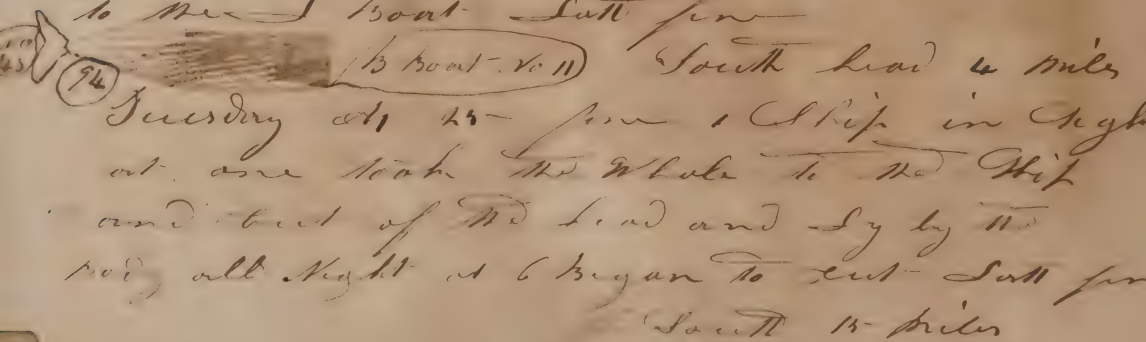 to the I Boat Latt fine
94 B Boat No 11 South head 4 Miles
Tuesday 25 fine 1 Ship in Sigh
at one took the Whole to the Ship
and cut of the head and Ly by the
Bo all Night at 6 Began to cut Latt fin
South 15 Miles